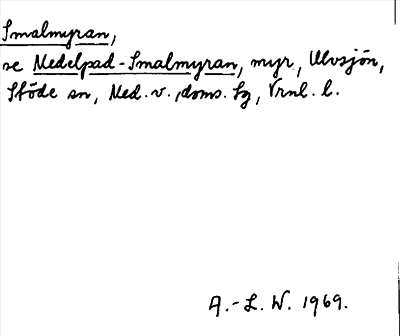 Smalmyran,
se Medelpad-Smalmyran, myr, Ulvsjön,
Stöde sn, Med. v., doms. sg, Vrnl. l.
A.-L. W. 1969.